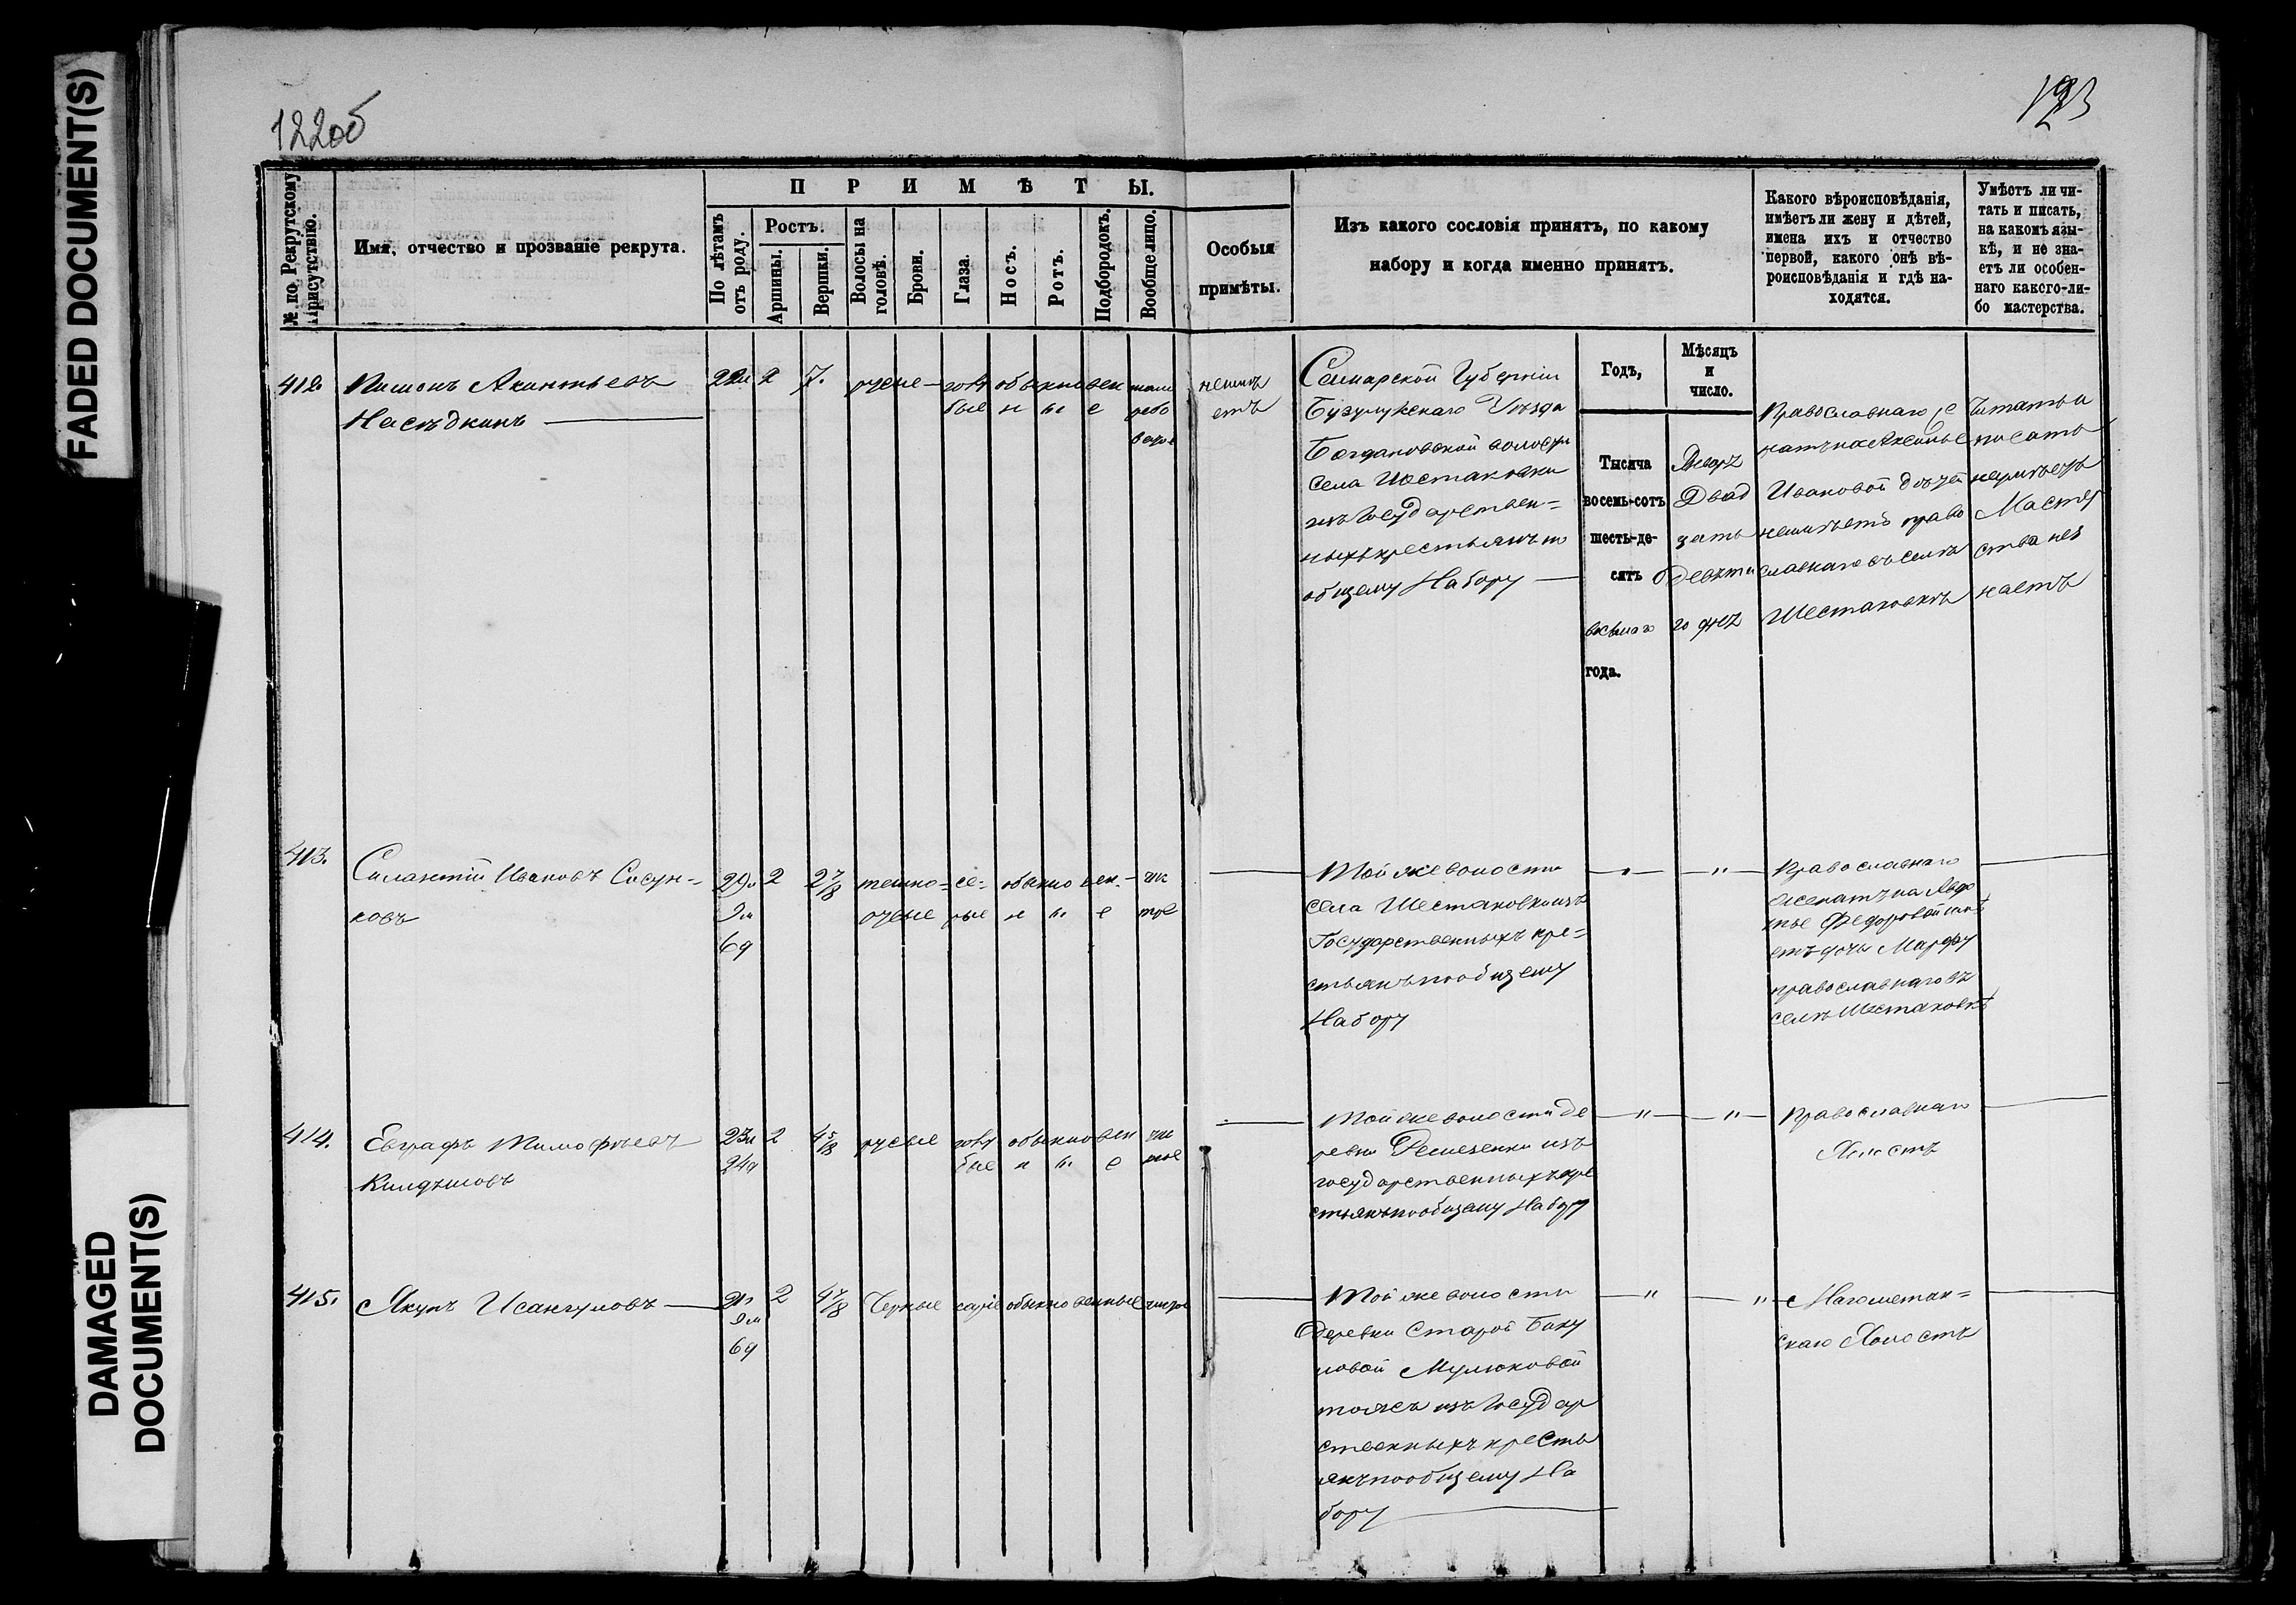 FADED DOCUMENT(S)
DAMAGED
DOCUMENT(S)
122об
123
№ по Рекрутскому
Присутствію.
Имя, отчество и прозваніе рекрута.
ПРИМѢТЫ.
По лѣтамъ
отъ роду.
Ростъ.
Аршины.
Вершки.
Волосы на
головѣ.
Брови.
Глаза.
Носъ.
Ротъ.
Подбородокъ.
Вообще лицо.
Особыя
примѣты.
Изъ какого сословія принятъ, по какому
набору и когда именно принятъ.
Какого вѣроисповѣданія,
имѣетъ ли жену и дѣтей,
имена ихъ и отчество
первой, какого онѣ вѣ-
роисповѣданія и гдѣ на-
ходятся.
Умѣетъ ли чи-
тать и писать,
на какомъ язы-
кѣ, и не зна-
етъ ли особен-
наго какого-ли-
бо мастерства.
412
Акинтьевъ
Насѣдкинъ
22л
2
7.
русые
голу
бые
обыкновен
н ы е
неимѣ
етъ
Самарской Губерніи
Бузулукскаго Уѣзда
Богдановской волости
села Шестаковки
изъ Государствен=
ныхъ крестьянъ по
общему Набору
Годъ,
Тысяча
восемь-сотъ
шесть-де-
сятъ
восьмаго
года.
Мѣсяцъ
и
число.
Генвр
Двад
цать
девята
го дня
Православнаго, же
натъ на Аксинье
Ивановой дѣтей
неимѣетъ право
славнаго въ селѣ
Шестаковкѣ
Читать и
писать
неумѣетъ
Мастер
ства нез
наетъ
413.
Силантій Ивановъ Сосун-
ковъ
29л
9м
6д
2
2 7/8
темно-
русые
се-
рые
обыкновен-
н ы е
чис
тое
Той же волости
села Шестаковки изъ
Государственныхъ кре=
стьянъ по общему
Набору
"
"
Православнаго
женатъ на Авдо
тье Федоровой имѣ
етъ дочь Марфу
православнаго въ
селѣ Шестаковкѣ
414.
Евграфъ Тимофѣевъ
Килдышовъ
23л
24д
2
4 5/8
русые
голу
бые
обыкновен
н ы е
чис
тое
Той же волости де
ревни изъ
государственныхъ кре
стьянъ по общему Набору
"
"
Православнаго
Холостъ
415.
Якупъ Исангуловъ
21л
9м
6д
2
4 7/8
Черные
каріе
обыкновенные
чистое
Той же волости
деревни Старой Баку
ловой Мулюковой
тожъ изъ Государ
ственныхъ кресть
янъ по общему На
бору
"
"
Магометан=
скаго Холостъ